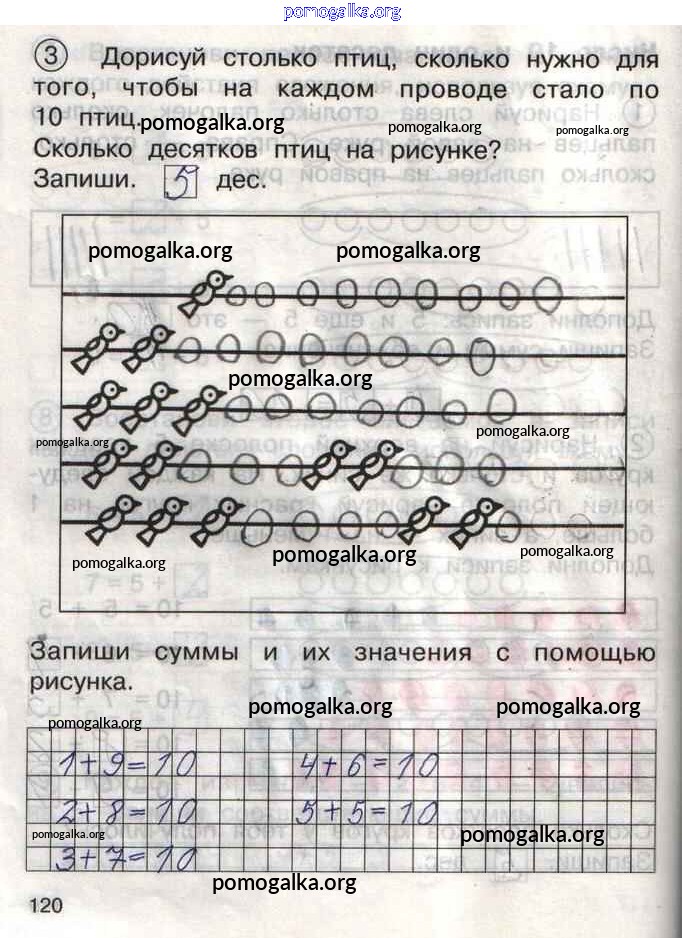 pomogalka.org
3 Дорисуй столько птиц, сколько нужно для
того, чтобы на каждом проводе стало по
10 птиц.
pomogalka.org pomogalka.org pomogalka.org
Сколько десятков птиц на рисунке?
Запиши. 5 дес.
pomogalka.org pomogalka.org
pomogalka.org
pomogalka.org pomogalka.org
pomogalka.org pomogalka.org pomogalka.org
Запиши суммы и их значения с помощью
рисунка.
pomogalka.org pomogalka.org pomogalka.org
1+9=10 4+6=10
2+8=10 5+5=10
pomogalka.org pomogalka.org
3+7=10
pomogalka.org
120